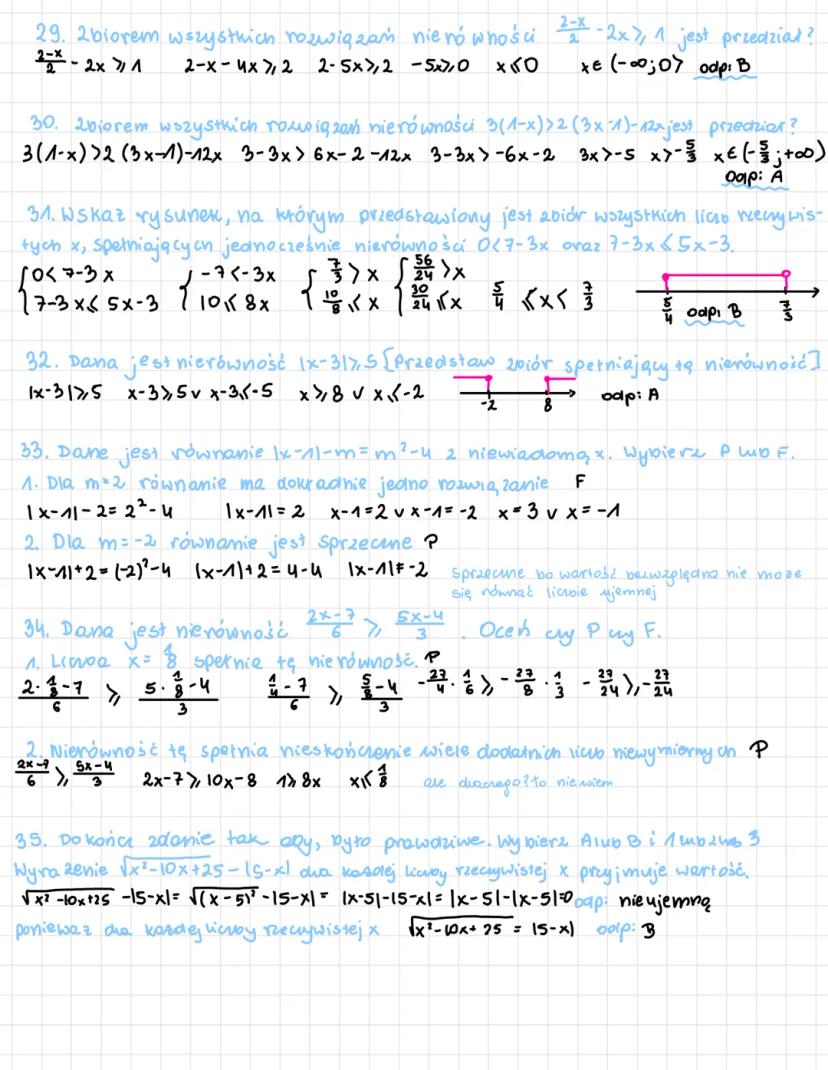 29. Zbiorem wszystkich rozwiązań nierówności \frac{2-x}{2} - 2x ⩾ 1 jest przedział?
\frac{2-x}{2} - 2x ⩾ 1 2-x-4x⩾2 2-5x⩾2 -5x⩾0 x⩽0 x∈(-∞;0⟩ odp: B
30. Zbiorem wszystkich rozwiązań nierówności 3(1-x)>2(3x-1)-12x jest przedział?
3(1-x)>2(3x-1)-12x 3-3x>6x-2-12x 3-3x>-6x-2 3x>-5 x>-\frac{5}{3} x∈(-\frac{5}{3};+∞)
odp: A
31. Wskaż rysunek, na którym przedstawiony jest zbiór wszystkich liczb rzeczywis-
tych x, spełniających jednocześnie nierówności 0<7-3x oraz 7-3x⩽5x-3.
{0<7-3x {-7<-3x {\frac{7}{3}>x {\frac{56}{24}>x
7-3x⩽5x-3 10⩽8x \frac{10}{8}⩽x \frac{30}{24}⩽x \frac{5}{4}⩽x<\frac{7}{3} \frac{5}{4} odp: B \frac{7}{3}
32. Dana jest nierówność |x-3|⩾5 [Przedstaw zbiór spełniający tę nierówność]
|x-3|⩾5 x-3⩾5 v x-3⩽-5 x⩾8 v x⩽-2 -2 8 odp: A
33. Dane jest równanie |x-1|-m=m²-4 z niewiadomą x. Wybierz P lub F.
1. Dla m=2 równanie ma dokładnie jedno rozwiązanie F
|x-1|-2=2²-4 |x-1|=2 x-1=2 v x-1=-2 x=3 v x=-1
2. Dla m=-2 równanie jest sprzeczne P
|x-1|+2=(-2)²-4 |x-1|+2=4-4 |x-1|≠-2 sprzeczne bo wartość bezwzględna nie może
się równać liczbie ujemnej
34. Dana jest nierówność \frac{2x-7}{6} ⩾ \frac{5x-4}{3}. Oceń czy P czy F.
1. Liczba x=\frac{1}{8} spełnia tę nierówność. P
\frac{2·\frac{1}{8}-7}{6} ⩾ \frac{5·\frac{1}{8}-4}{3} \frac{\frac{1}{4}-7}{6} ⩾ \frac{\frac{5}{8}-4}{3} -\frac{27}{4}·\frac{1}{6} ⩾ -\frac{27}{8}·\frac{1}{3} -\frac{27}{24} ⩾ -\frac{27}{24}
2. Nierówność tę spełnia nieskończenie wiele dodatnich liczb niewymiernych P
\frac{2x-7}{6} ⩾ \frac{5x-4}{3} 2x-7⩾10x-8 1⩾8x x⩽\frac{1}{8} ale dlaczego? to nie wiem
35. Dokończ zdanie tak aby, było prawdziwe. Wybierz A lub B i 1 lub 2 lub 3
Wyrażenie √x²-10x+25 - |5-x| dla każdej liczby rzeczywistej x przyjmuje wartość.
√x²-10x+25 -|5-x|= √(x-5)² -|5-x|= |x-5|-|5-x|= |x-5|-|x-5|=0 odp: nieujemną
ponieważ dla każdej liczby rzeczywistej x √x²-10x+25 = |5-x| odp: B